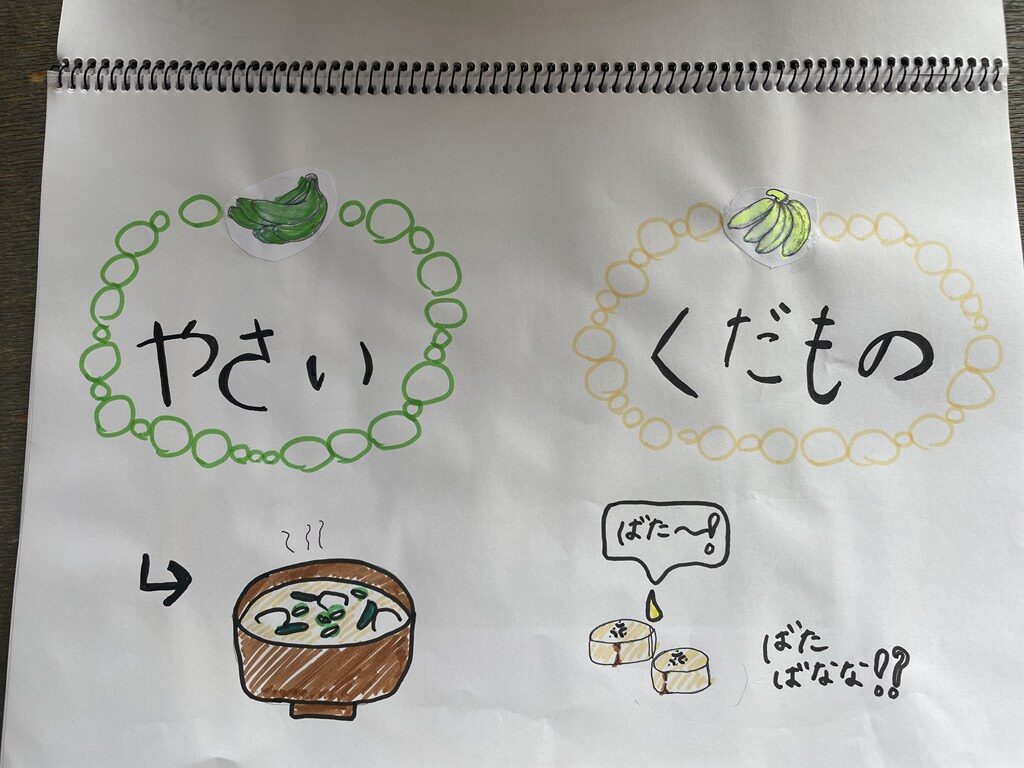 やさい
くだもの
ばた〜!
ばた
ばなな!?